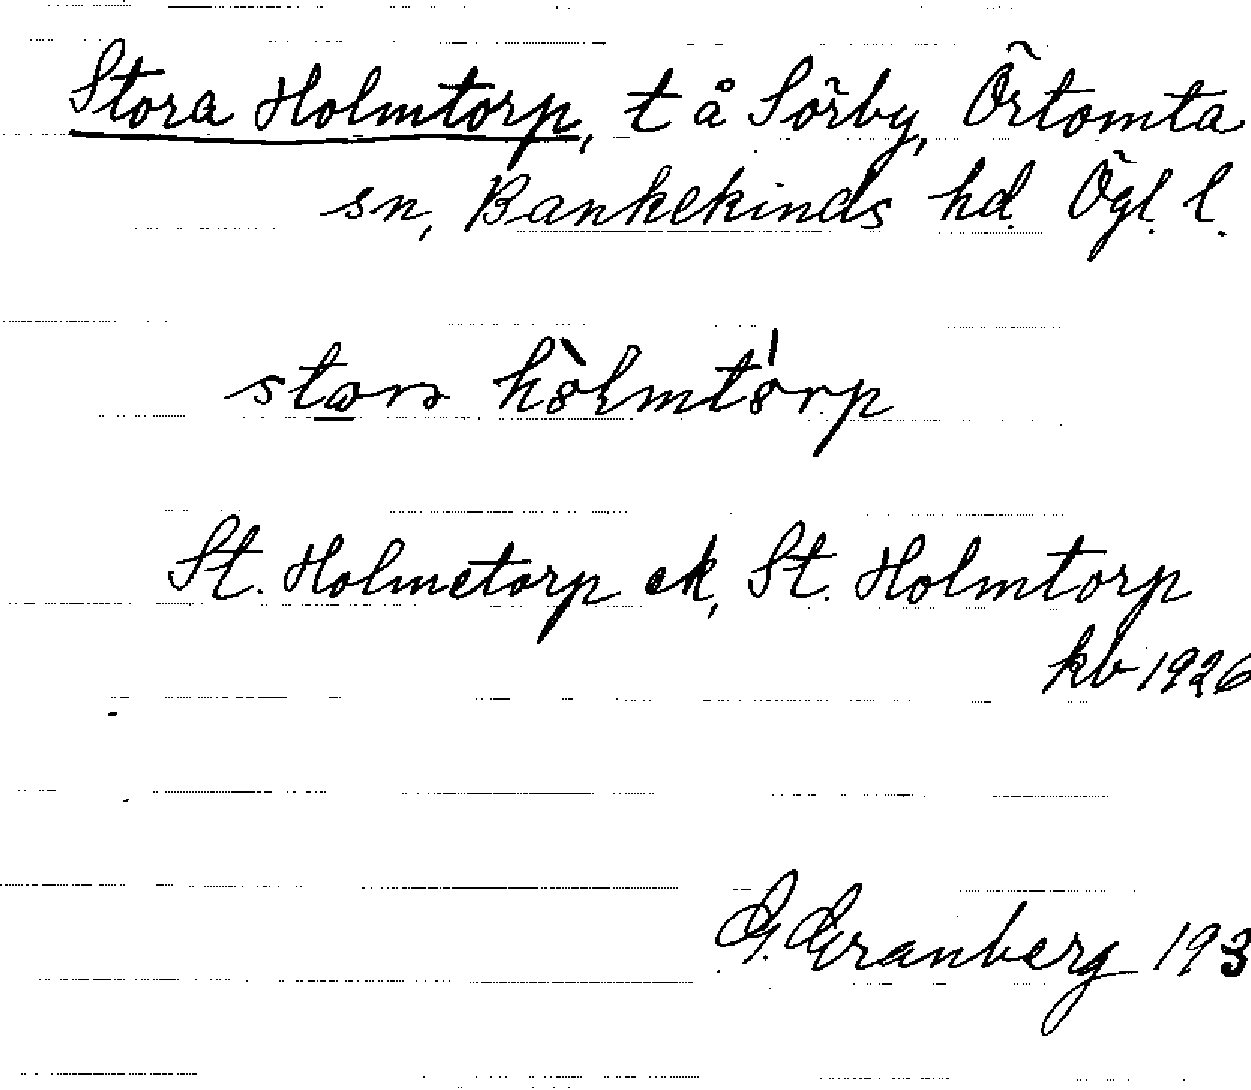 Stora Holmtorp, t å Sörby, Örtomta
sn, Bankekinds hd. Ögl. l.
hòlmtórp
St. Holmetorp ek, St. Holmtorp
kb 1926
G. Granberg 193